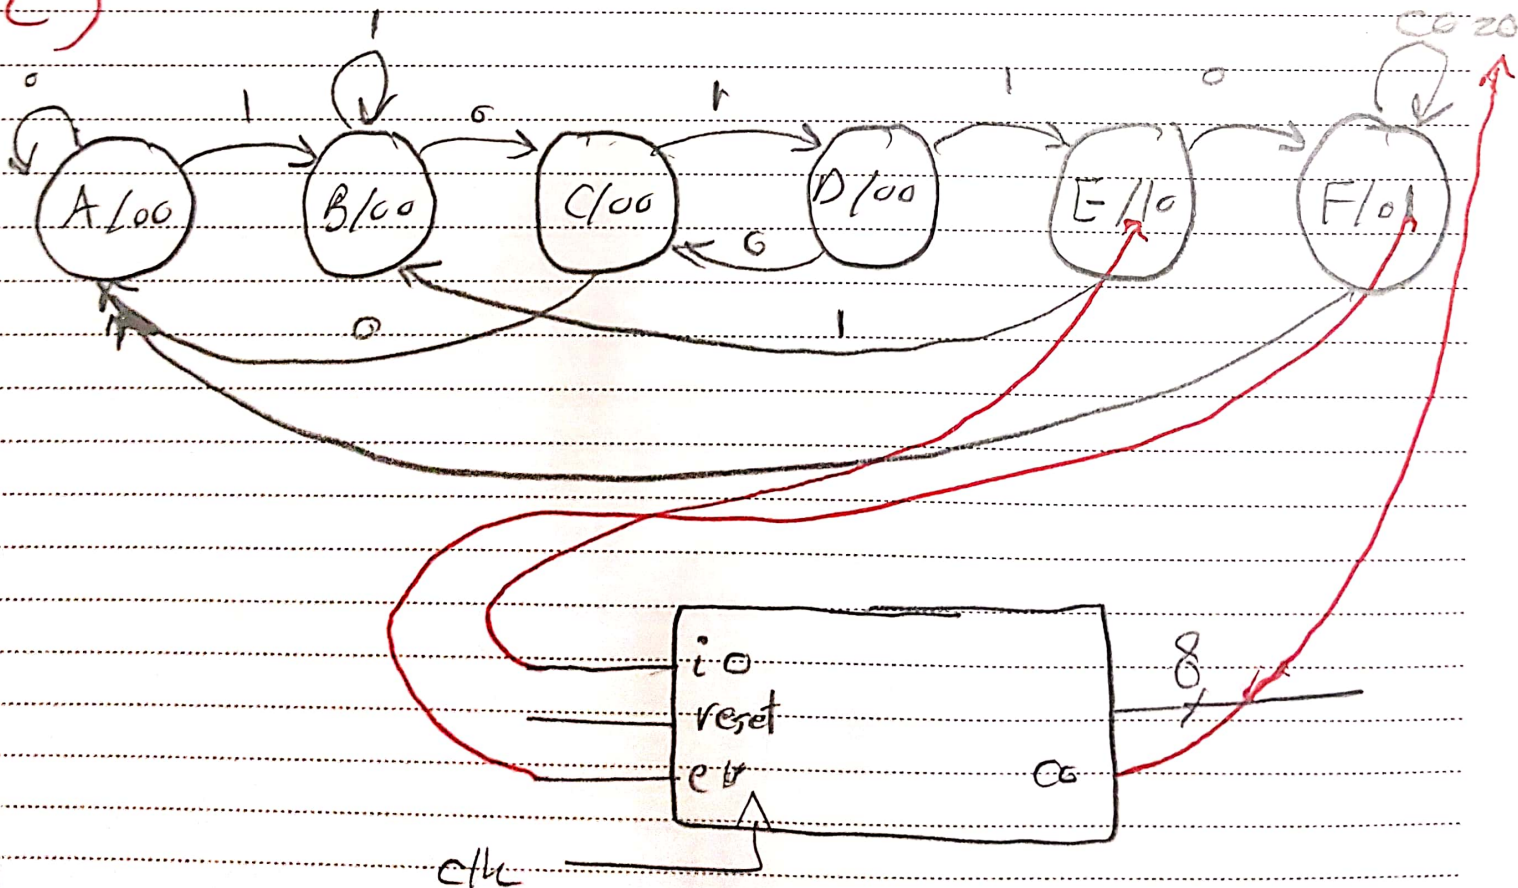 c)
1
Co=0
0
1
0
1
1
0
A/00
B/00
C/00
D/00
E/10
F/01
0
0
1
8
i0
reset
en
Co
clk